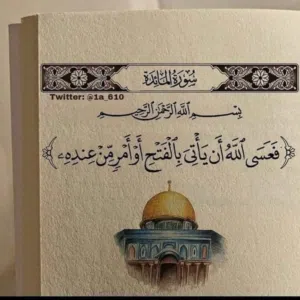 سُورَةُ المَائِدَة
Twitter: @1a_610
بِسْمِ اللَّهِ الرَّحْمَٰنِ الرَّحِيمِ
﴿فَعَسَى اللَّهُ أَن يَأْتِىَ بِالْفَتْحِ أَوْ أَمْرٍ مِّنْ عِندِهِۦ﴾